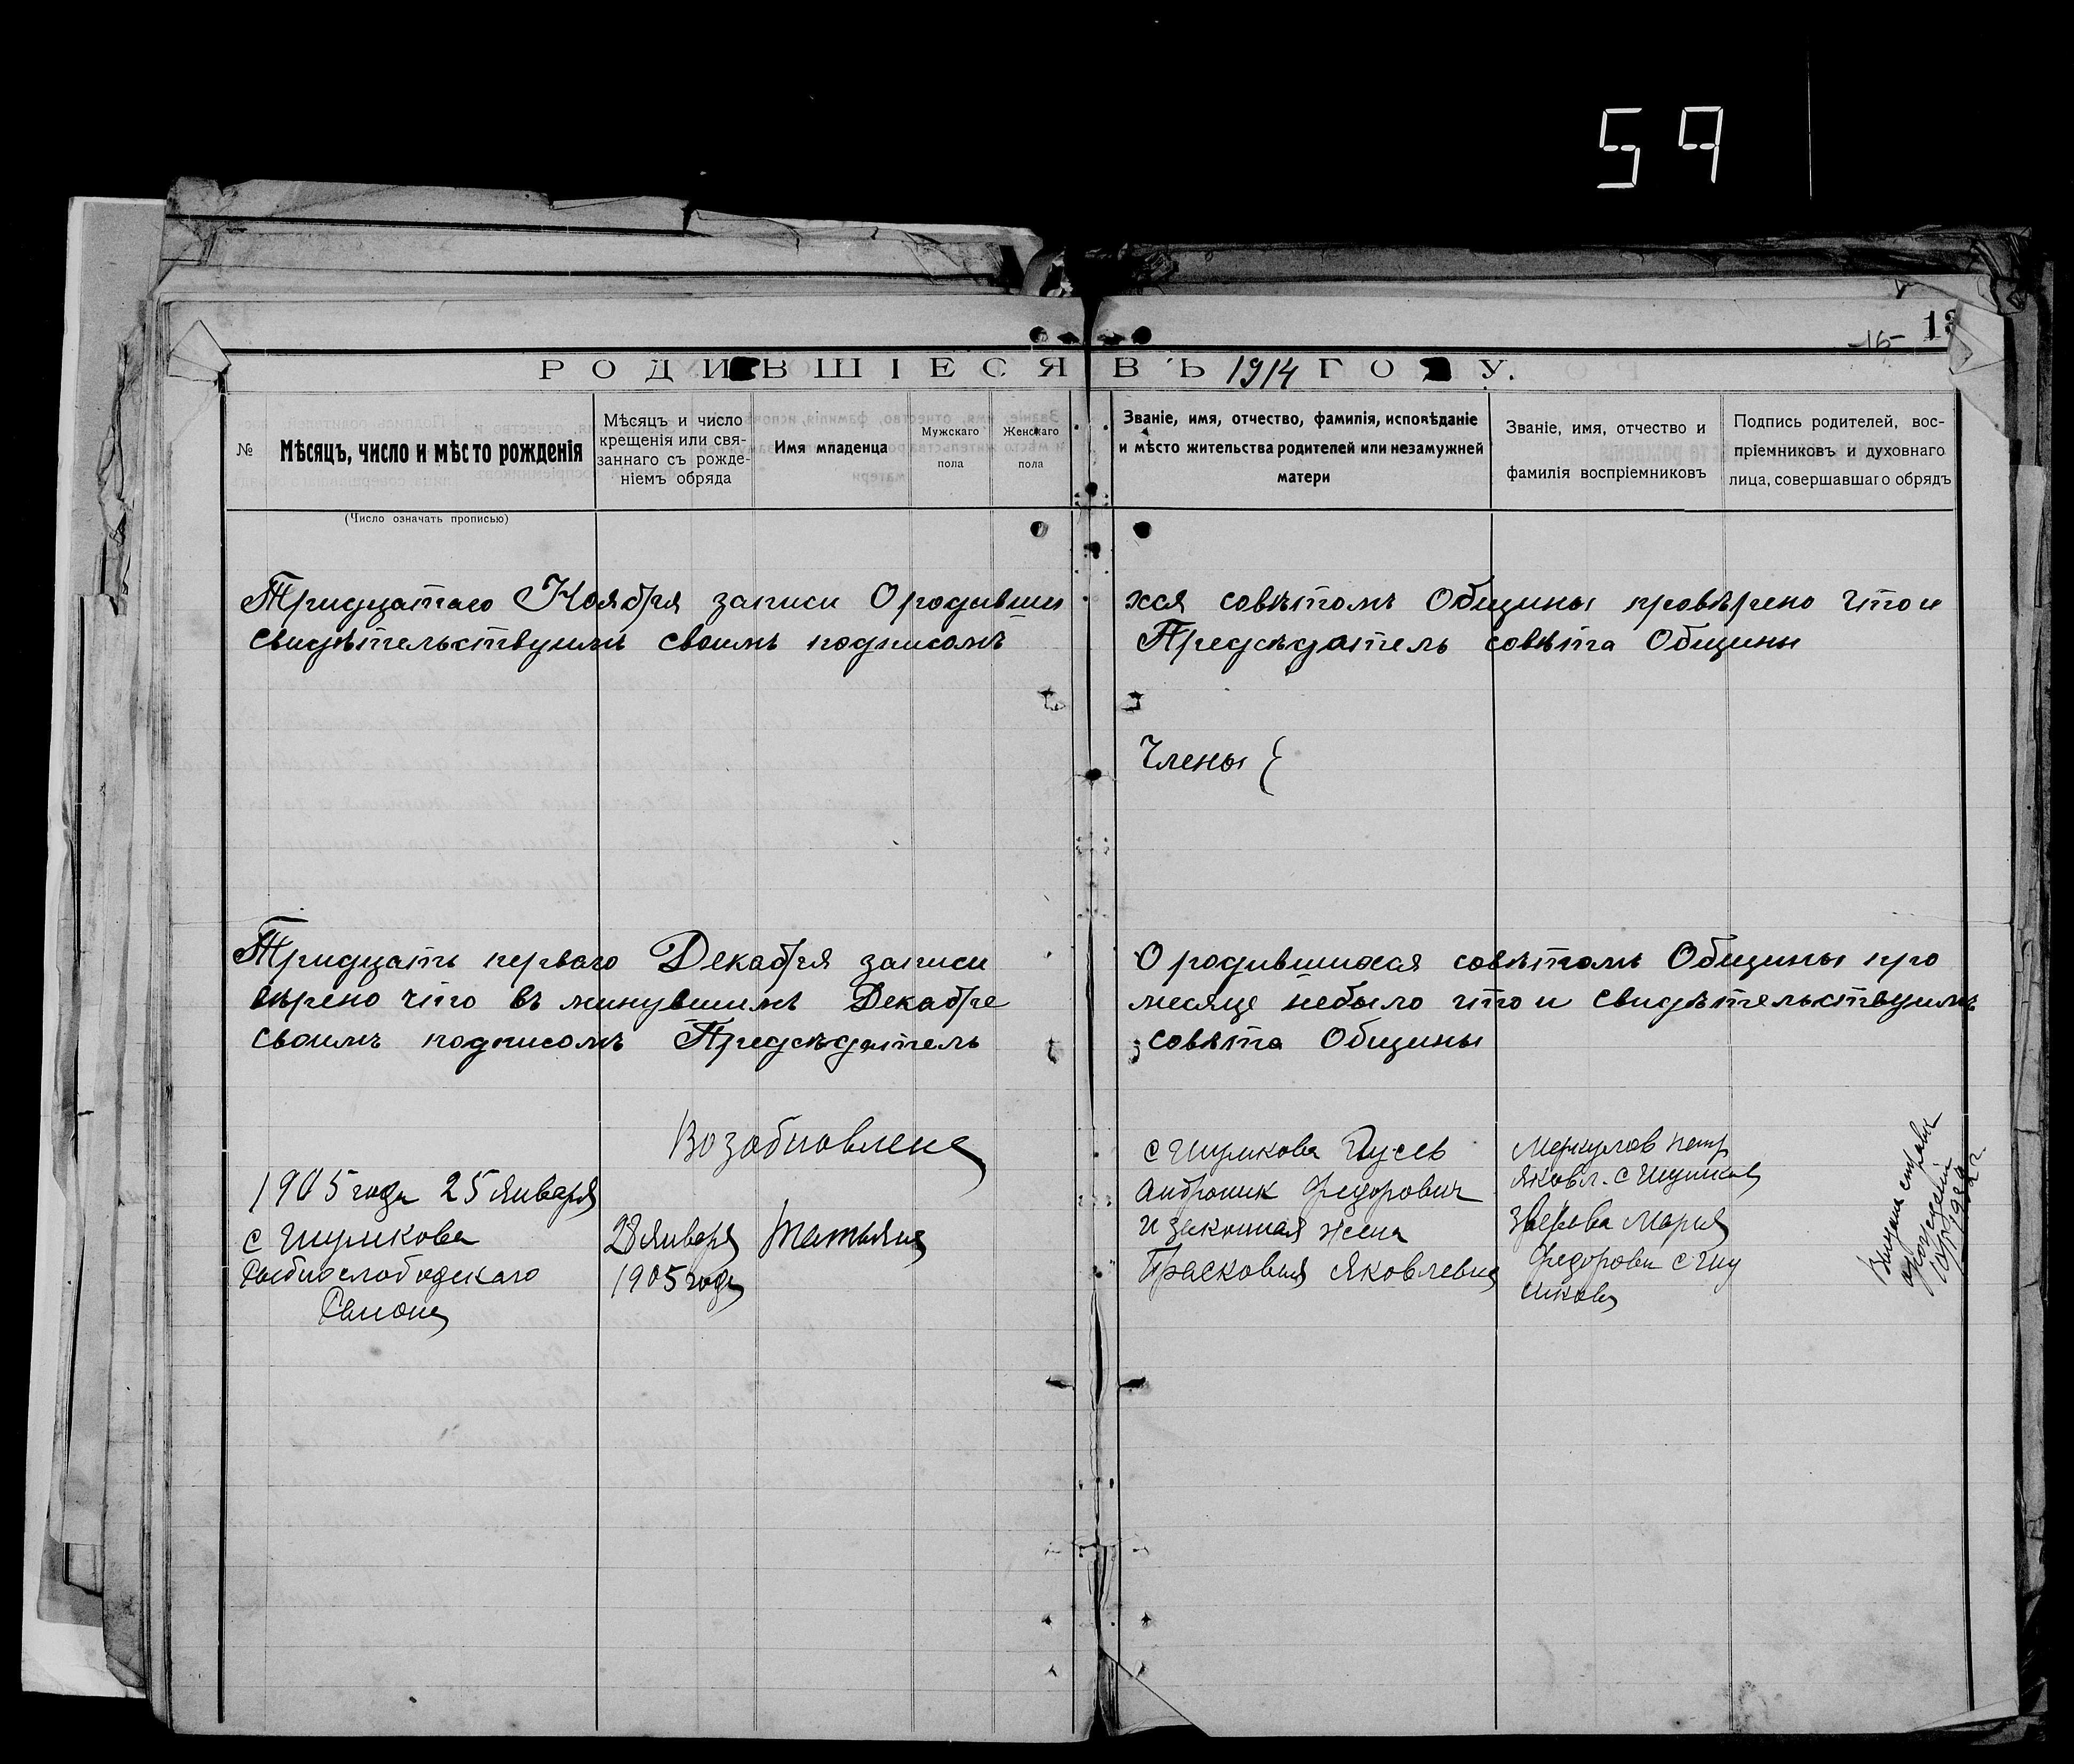 59
-16- 13
РОДИВШІЕСЯ ВЪ 1914 ГОДУ.
№
Мѣсяцъ, число и мѣсто рожденія
Мѣсяцъ и число
крещенія или свя-
заннаго съ рожде-
ніемъ обряда
Имя младенца
Мужскаго
пола
Женскаго
пола
Званіе, имя, отчество, фамилія, исповѣданіе
и мѣсто жительства родителей или незамужней
матери
Званіе, имя, отчество и
фамилія воспріемниковъ
Подпись родителей, вос-
пріемниковъ и духовнаго
лица, совершавшаго обрядъ
(Число означать прописью)
Тридцатаго Ноября записи О родивши хся совѣтомъ Общины провѣрено что и
свидѣтельствуимъ своимъ подписомъ Предсѣдатель совѣта Общины
Члены {
Тридцать перваго Декабря записи О родившихся совѣтомъ Общины про
вѣрено что въ минувшимъ Декабре месяце небыло что и свидѣтельствуимъ
своимъ подписомъ Предсѣдатель совѣта Общины
Возобновлена
1905 года 25 января
с Шумкова
Рыбнослободскаго
Района
28 января
1905 года
Татьяна
с Шумкова Гусев
Андроник Федорович
и законная жена
Прасковия Яковлевна
Меркулов Петр
Яковл. с Шумков
Зверева Мария
Федоровн с Шу
мкова
Выдана
1932 г.